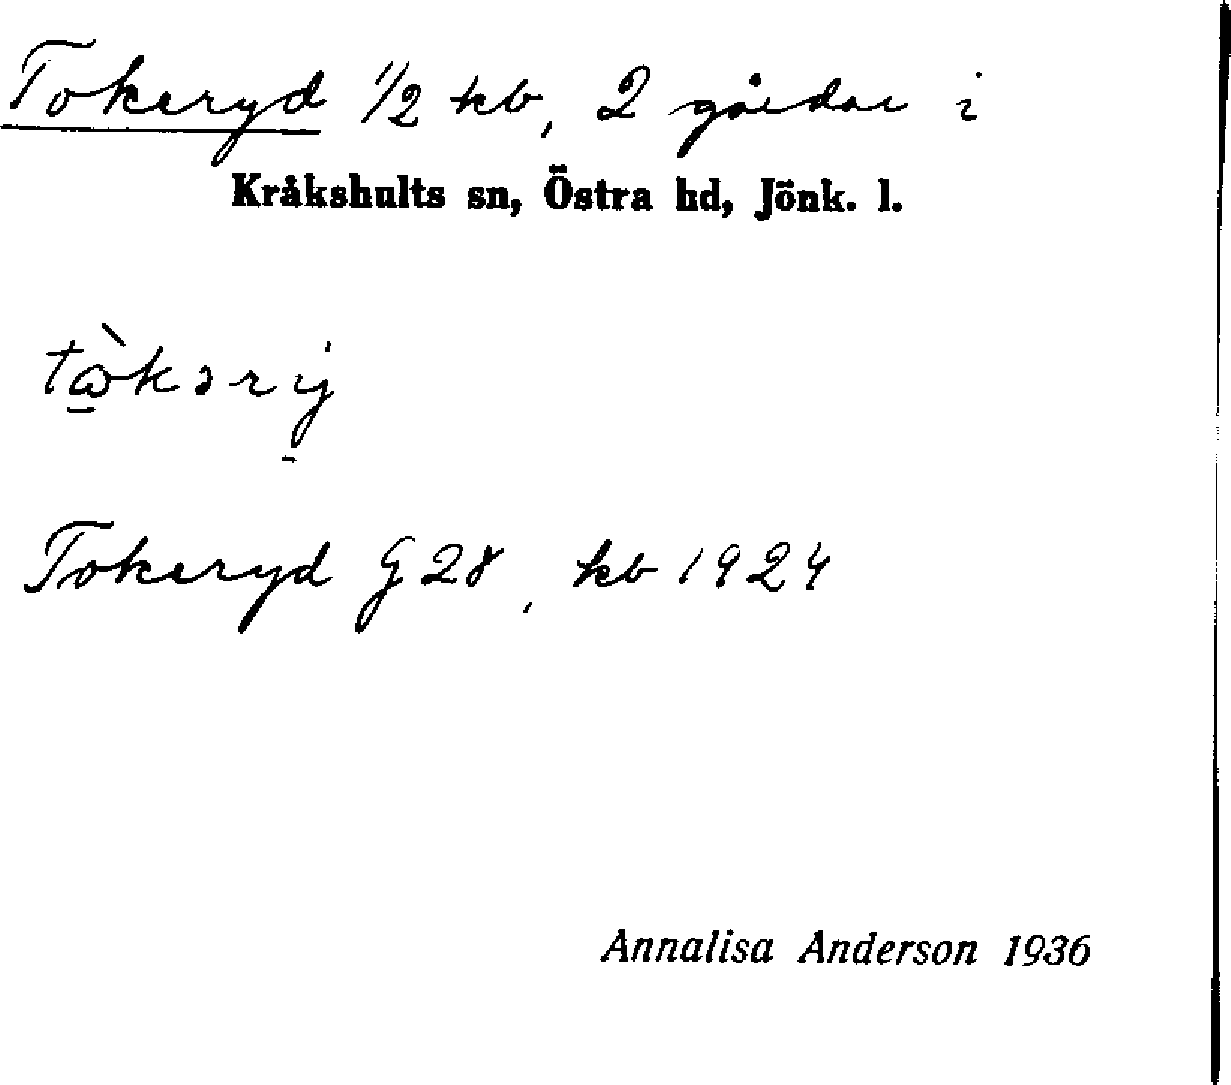 Tokeryd 1/2 kb, 2 gårdar i
Kråkshults sn, Östra hd, Jönk. l.
tὼkərij
Tokeryd G 28, kb 1924
Annalisa Anderson 1936